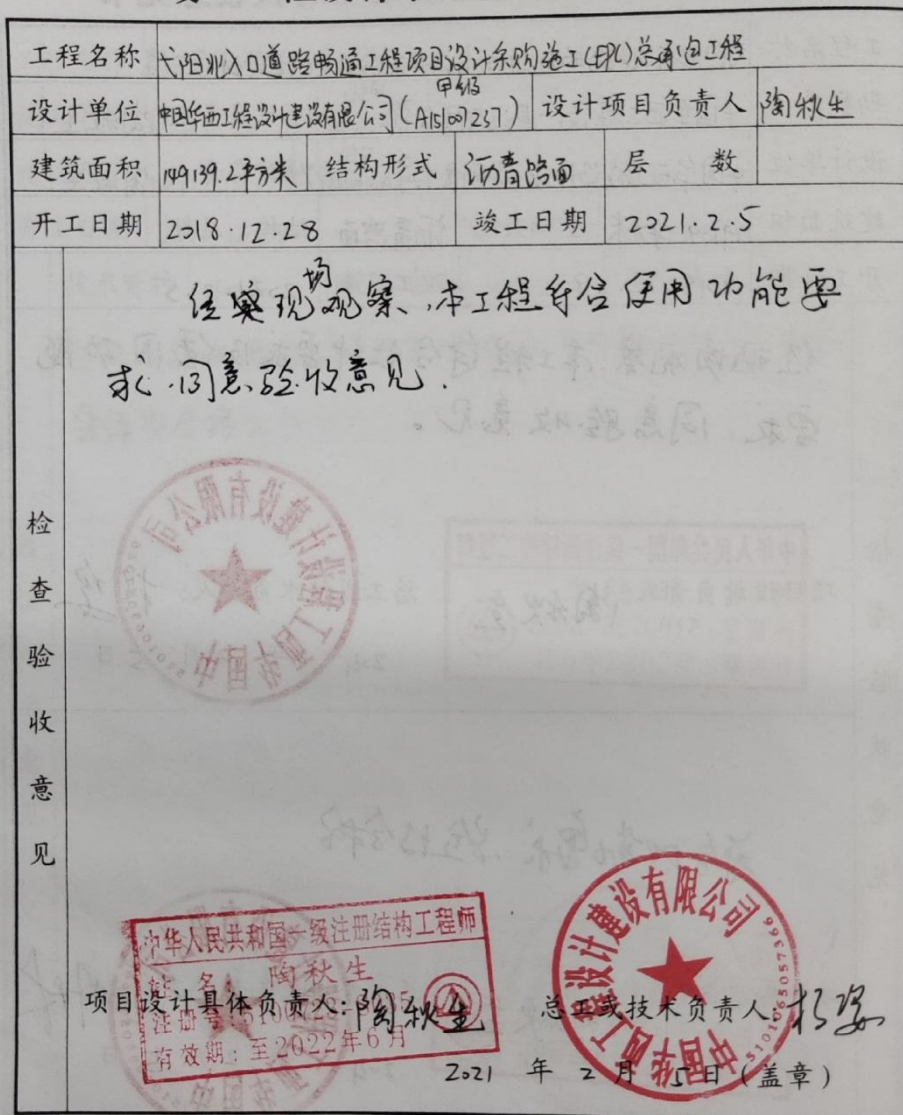 工程名称 弋阳北入口道路畅通工程项目设计采购施工(EPC)总承包工程
设计单位 中国华西工程设计建设有限公司(甲级 A151007237) 设计项目负责人 陶秋生
建筑面积 149139.2平方米 结构形式 沥青路面 层数
开工日期 2018.12.28 竣工日期 2021.2.5
检查验收意见
经现场观察、本工程符合使用功能要
求.同意验收意见.
中国华西工程设计建设有限公司
中华人民共和国一级注册结构工程师
姓名: 陶秋生
注册号
有效期:至2022年6月
项目设计具体负责人:陶秋生 总工或技术负责人:
中国华西工程设计建设有限公司
2021 年 2 月 5 日(盖章)